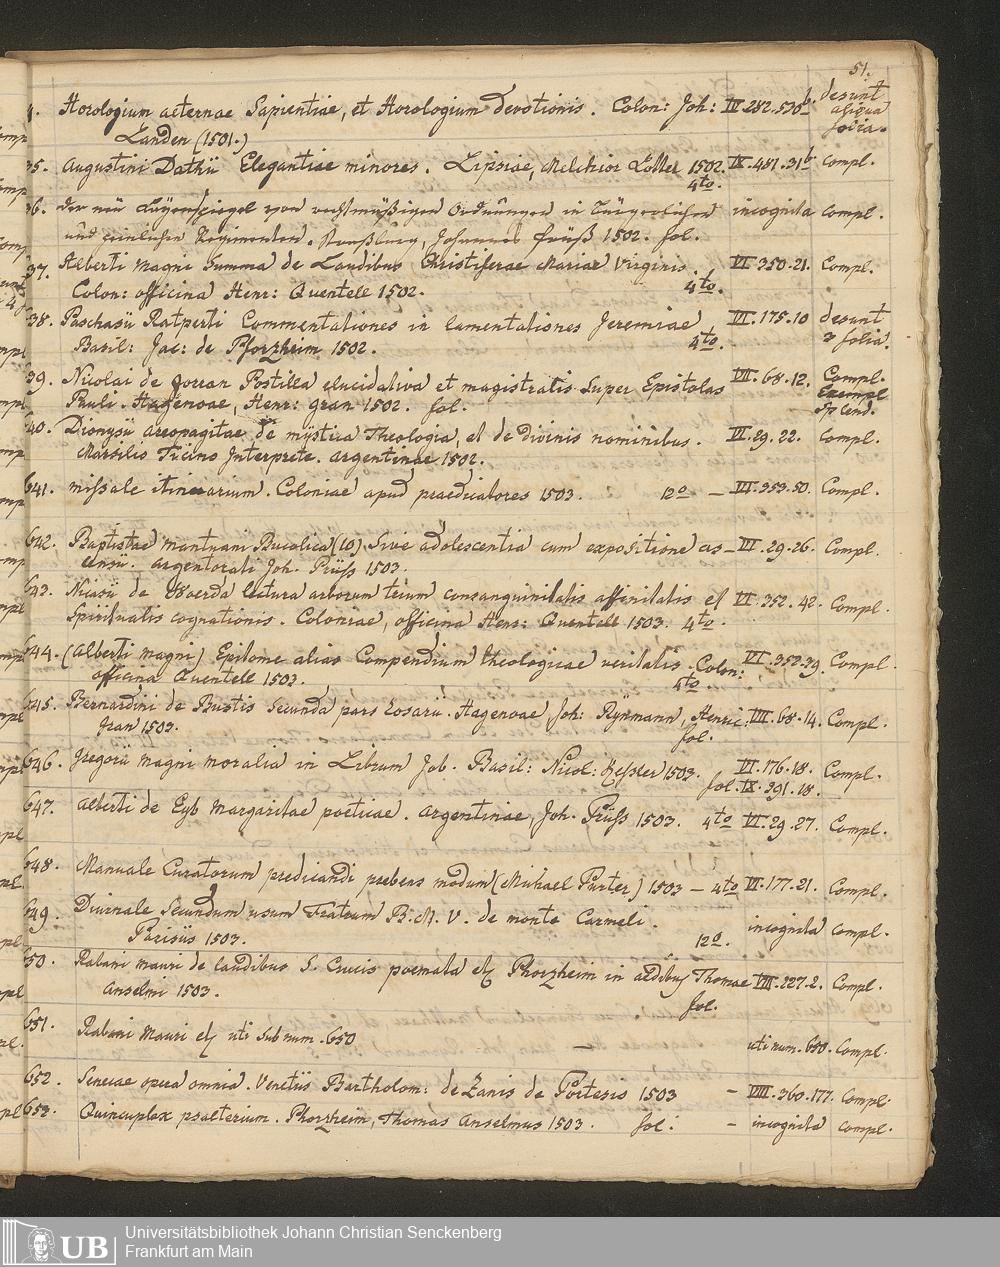 51.
4. Horologium aeternae Sapientiae, et Horologium devotionis. Colon: Joh: IX.282.530b desunt aliqua folia.
Landen (1501.)
35. Augustini Dathii Elegantiae minores. Lipsiae, Melchior Lotter 1502. IX.481.31b Compl.
4to.
36. Der neü Layenspiegel von rechtmäßigen Ordnungen in Bürgerlichen incognita Compl.
und peinlichen Regimenten. Straßburg, Johannes Prüß 1502. fol.
37. Alberti Magni Summa de Laudibus Christiferae Mariae Virginis. VI.350.21. Compl.
Colon: officina Henr: Quentell 1502. 4to.
38. Paschasii Ratperti Commentationes in lamentationes Jeremiae VI.175.10 desunt 2 folia.
Basil: Jac: de Pforzheim 1502. 4to.
39. Nicolai de gorran Postilla elucidativa et magistralis Super Epistolas VII.68.12. Compl.
Pauli. Hagenoae, Henr: gran 1502. fol. Exempl Splend.
40. Dionysii areopagitae de mÿstica Theologia, et de divinis nominibus. VI.29.22. Compl.
Marsileo Ficino Interprete. argentinae 1502.
641. Missale itinerarium. Coloniae apud praedicatores 1503. 12o – VI.353.50. Compl.
642. Baptistae Mantuani Bucolica (10) Sive adolescentia cum expositione as– VI.29.26. Compl.
censii. argentorati Joh. Prüss 1503.
643. Nicasii de Woerda lectura arborum trium consanguinitatis affinitatis et VI.352.42. Compl.
Spiritualis cognationis. Coloniae, officina Henr: Quentell 1503. 4to.
644. (Alberti Magni) Epitome alias Compendium theologicae veritatis. Colon: VI.352.39. Compl.
officina Quentell 1503. 4to.
645. Bernardini de Bustis Secunda pars Rosarii. Hagenoae Joh: Rÿnmann, Henric: VIII.68.14. Compl.
Gran 1503. fol.
646. Gregorii Magni moralia in Librum Job. Basil: Nicol: Kessler 1503. VI.176.18. Compl.
fol. IX.391.18.
647. Alberti de Eyb Margaritae poeticae. Argentinae, Joh. Prüss 1503. 4to VI.29.27. Compl.
648. Manuale Curatorum predicandi prebens modum (Michael Furter) 1503 – 4to VI.177.21. Compl.
649. Diurnale Secundum usum Fratrum B. M. V. de monte Carmeli. incognita Compl.
Parisiis 1503. 12o.
650. Rabani Mauri de laudibus S. Crucis poemata etc Phorzheim in aedibus Thomae VIII.227.2. Compl.
Anselmi 1503. fol.
651. Rabani Mauri etc uti Sub num. 650 – uti num. 650. Compl.
652. Senecae opera omnia. Venetiis Bartholom: de Zanis de Portesio 1503 – VIII.360.177. Compl.
653. Quincuplex psalterium. Phorzheim, Thomas Anselmus 1503. fol: – incognita Compl.
UB
Universitätsbibliothek Johann Christian Senckenberg
Frankfurt am Main